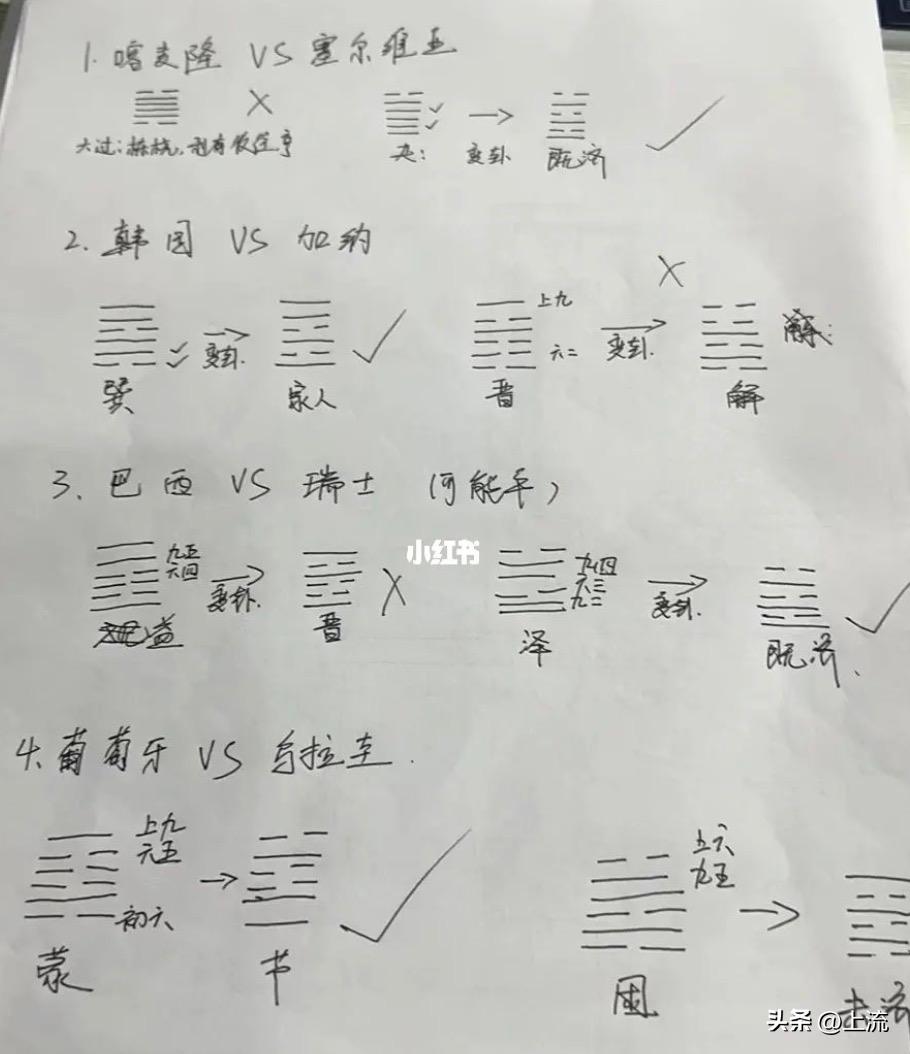 1. 喀麦隆 VS 塞尔维亚
大过：栋桡，利有攸往亨
夬： 变卦 既济
2. 韩国 VS 加纳
上九
六二
变卦. 变卦.
巽 家人 晋 解
3、巴西 VS 瑞士 (可能平)
九五 九四
六四 六三
九二
变卦. 变卦.
益 晋 泽 既济.
小红书
4.葡萄牙 VS 乌拉圭.
上九 五六
六五 九五
初六
蒙 节 困 未济
头条 @上流